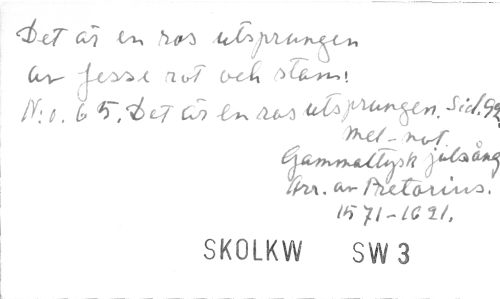 Det är en ros utsprungen
av Jesse rot och stam!
N:o. 65. Det är en ros utsprungen. Sid. 92.
Mel-not.
Gammaltysk julsång
Arr. av Pretorius.
1571-1621.
SKOLKW SW 3